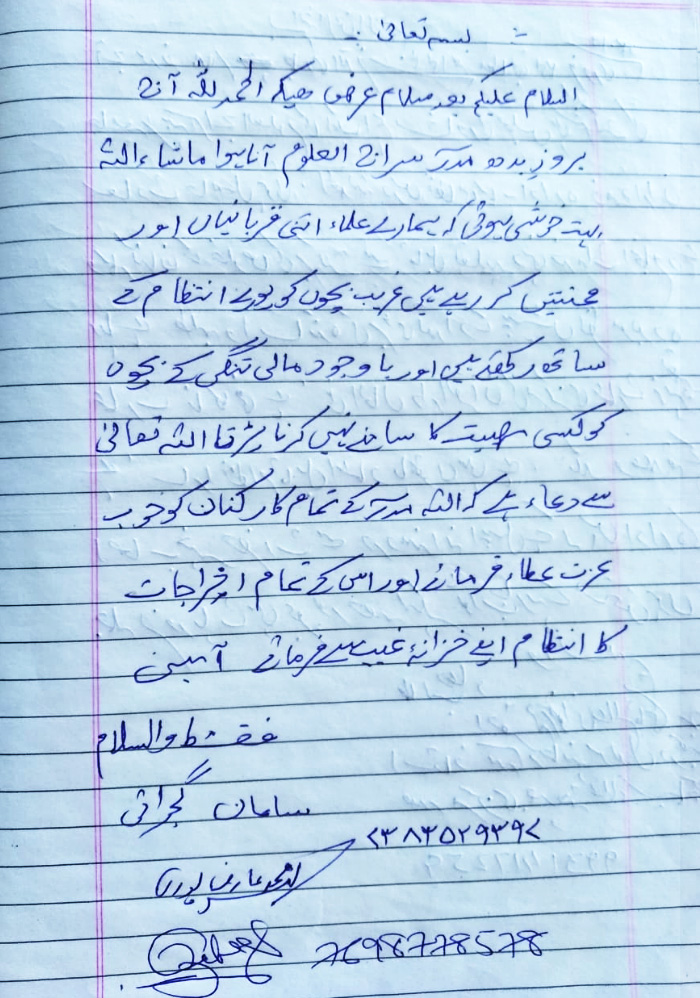 بسمہ تعالیٰ
السلام علیکم بعد سلام عرض ھیکہ الحمدللہ آج
بروز بدھ مدرسہ سراج العلوم آنا ہوا ماشاءاللہ
بہت خوشی ہوئی کہ ہمارے علماء اتنی قربانیاں اور
محنتیں کر رہے ہیں غریب بچوں کو پورے انتظام کے
ساتھ رکھتے ہیں اور باوجود مالی تنگی کے بچوں
کو کسی مصیبت کا سامنے نہیں کرنا پڑتا اللہ تعالیٰ
سے دعاء ہے کہ اللہ مدرسہ کے تمام کارکنان کو خوب
عزت عطاء فرمائے اور اس کے تمام اخراجات
کا انتظام اپنے خزانۂ غیب سے فرمائے آمین
فقط والسلام
سامان گجراتی
محمد عارف
7698778578